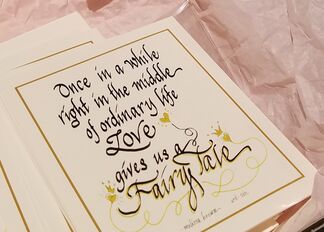 Once in a while
right in the middle
of ordinary life
Love
gives us a
Fairy Tale